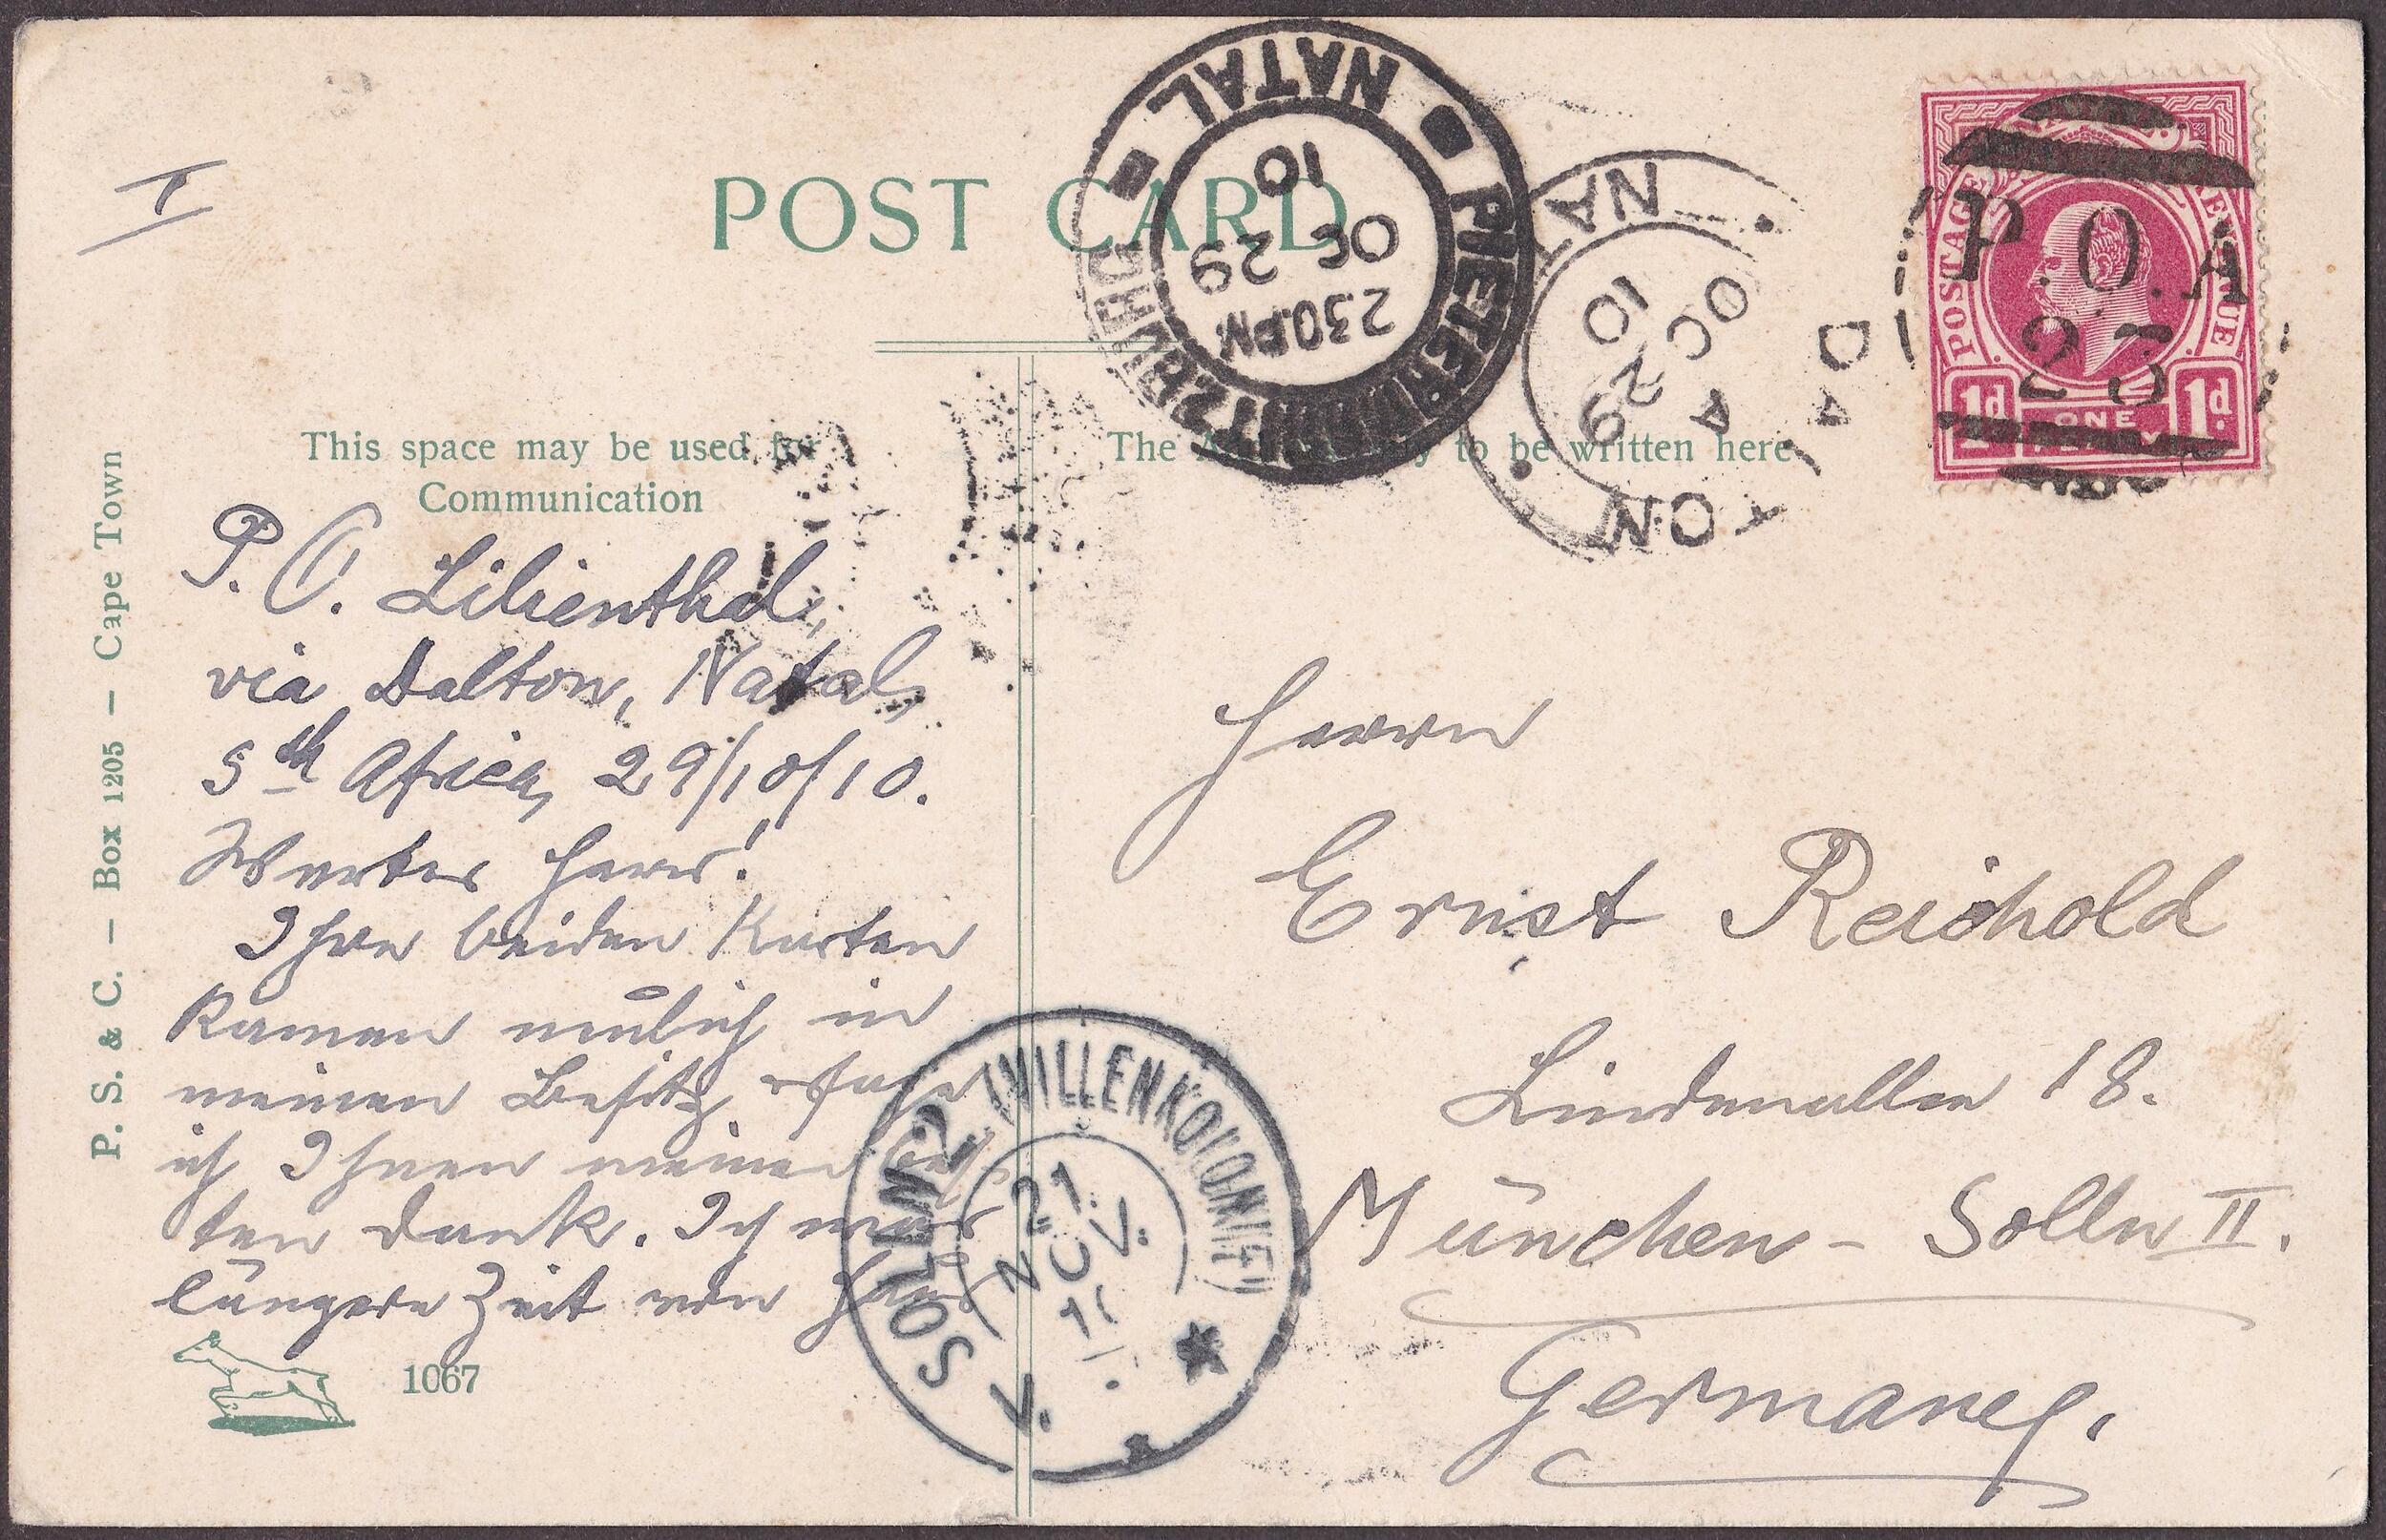 I
POST CARD
This space may be used for
Communication
The Address only to be written here
P. S. & C. — Box 1205 — Cape Town
P. O. Lilienthal,
via Dalton, Natal,
Sth Africa, 29/10/10.
Werter Herr!
Ihre beiden Karten
kamen neulich in
meinen Besitz, sage
ich Ihnen meinen bes-
ten Dank. Ich war
längere Zeit von Haus
1067
Herrn
Ernst Reichold
Lindenallee 18.
München - Solln II.
Germany.
PIETERMARITZBURG
NATAL
2 30.PM
OC 29
10
DALTON
NAT
A
OC 29
10
POSTAGE REVENUE
1d ONE PENNY 1d
P.O.A
23
SOLLN 2 (VILLENKOLONIE)
21.
NOV.
V.